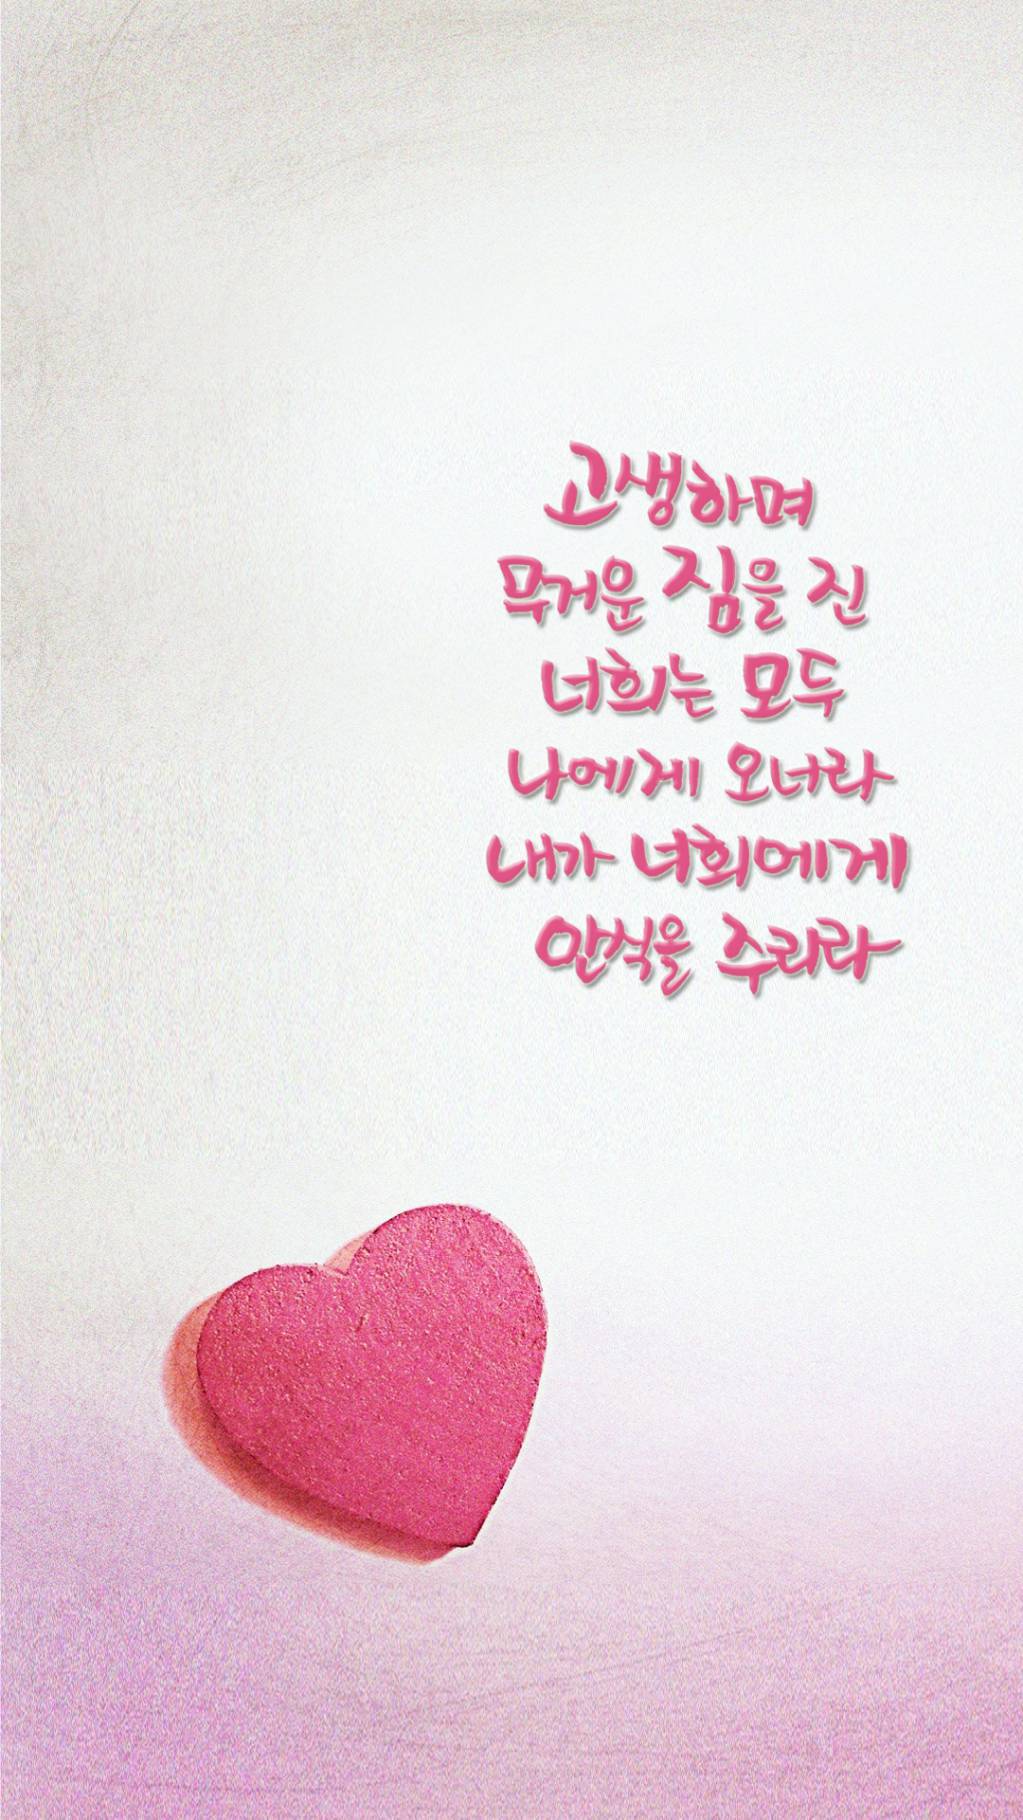 고생하며
무거운 짐을 진
너희는 모두
나에게 오너라
내가 너희에게
안식을 주리라